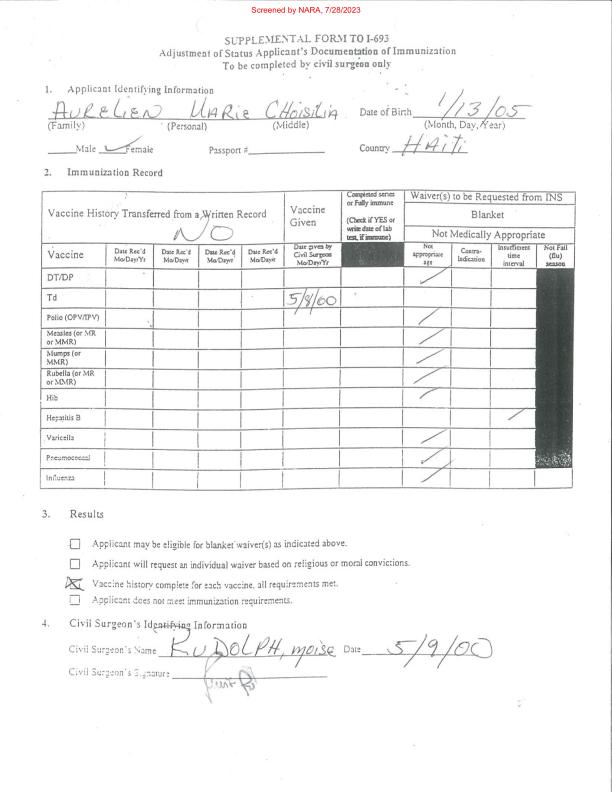 Screened by NARA, 7/28/2023
SUPPLEMENTAL FORM TO I-693
Adjustment of Status Applicant's Documentation of Immunization
To be completed by civil surgeon only
1. Applicant Identifying Information
AURELIEN MARIE CHOISILIA Date of Birth 1/13/05
(Family) (Personal) (Middle) (Month, Day, Year)
Male ✓ Female Passport # Country HAITI
2. Immunization Record
Vaccine History Transferred from a Written Record
NO
Vaccine Given
Completed series or Fully immune
(Check if YES or write date of lab test, if immune)
Waiver(s) to be Requested from INS
Blanket
Not Medically Appropriate
Vaccine
Date Rec'd Mo/Day/Yr
Date Rec'd Mo/Day/Yr
Date Rec'd Mo/Day/Yr
Date Rec'd Mo/Day/Yr
Date given by Civil Surgeon Mo/Day/Yr
Not appropriate age
Contra-Indication
Insufficient time interval
Not Fall (flu) season
DT/DP
Td 5/8/00
Polio (OPV/IPV)
Measles (or MR or MMR)
Mumps (or MMR)
Rubella (or MR or MMR)
Hib
Hepatitis B
Varicella
Pneumococcal
Influenza
3. Results
Applicant may be eligible for blanket waiver(s) as indicated above.
Applicant will request an individual waiver based on religious or moral convictions.
Vaccine history complete for each vaccine, all requirements met.
Applicant does not meet immunization requirements.
4. Civil Surgeon's Identifying Information
Civil Surgeon's Name RUDOLPH, moise Date 5/9/00
Civil Surgeon's Signature